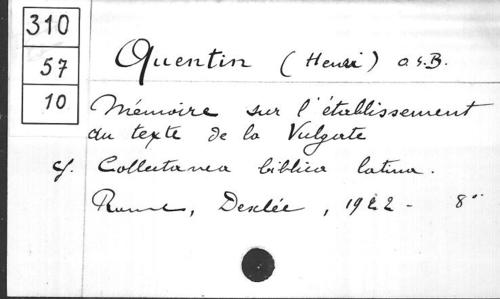 310
57
10
Quentin (Henri) O.S.B.
Mémoire sur l'établissement
du texte de la Vulgate
cf. Collectanea biblica latina.
Rome, Desclée, 1922 - 8°